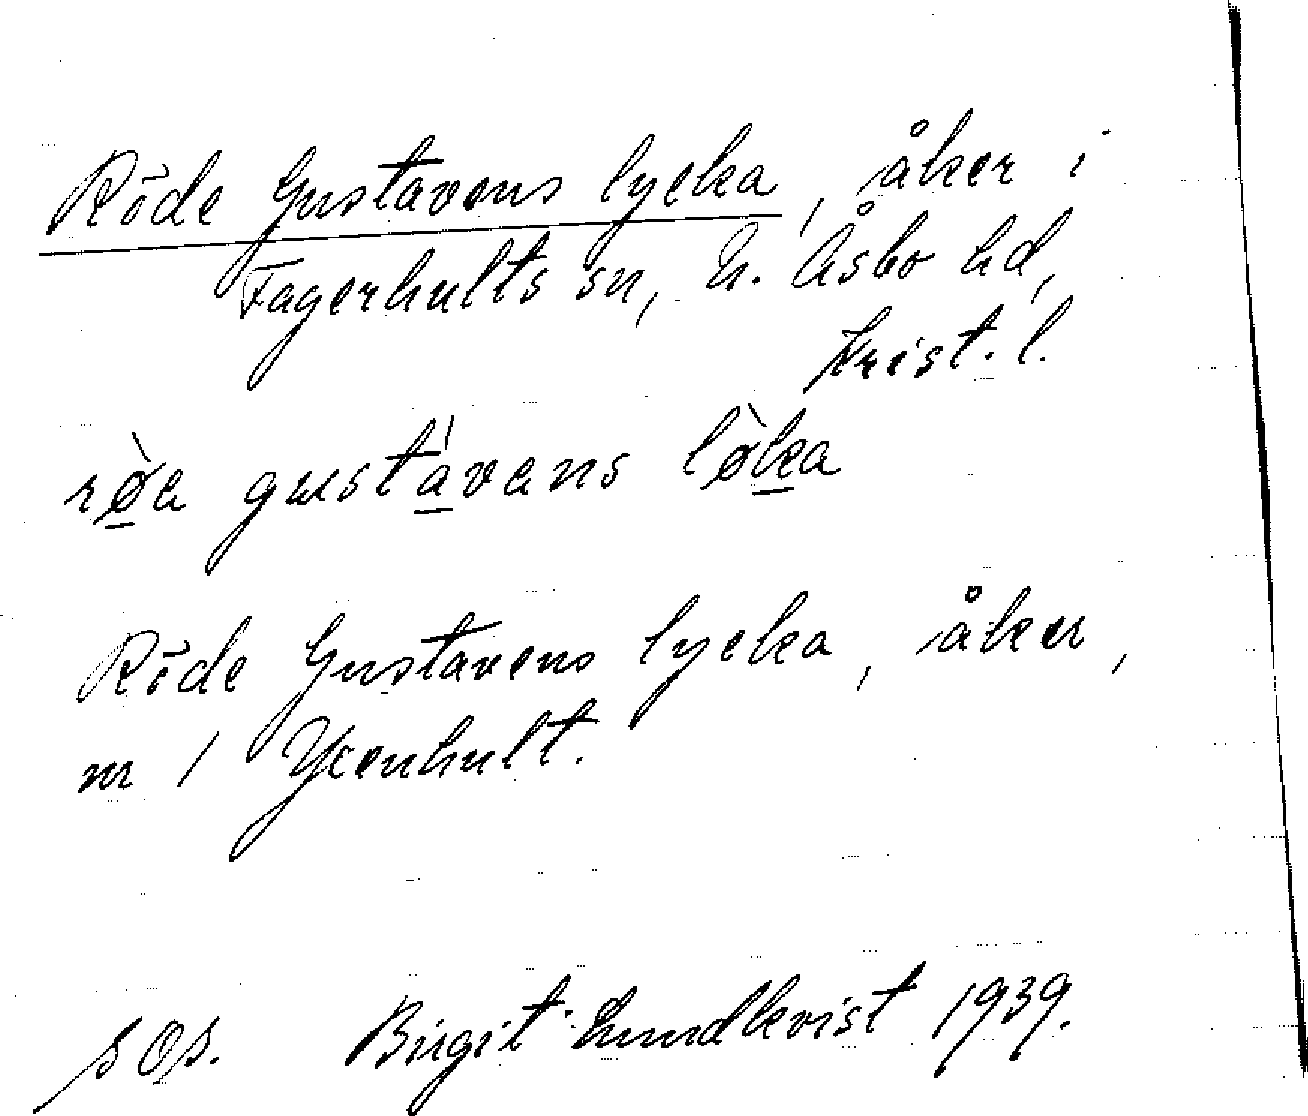 Röde Gustavens lycka, åker i
Fagerhults sn, N. Åsbo hd,
Krist. l.
rø̀a gustávans lø̀ka
Röde Gustavens lycka, åker,
nr 1 Yxenhult.
sOs. Birgit Lundkvist 1939.